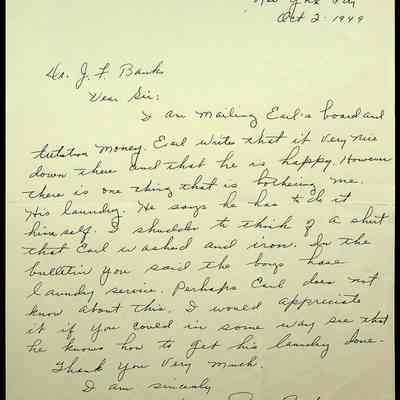 New York City
Oct 2 - 1949
Dr. J. F. Banks
Dear Sir:
I am mailing Earl's board and
tutation money. Earl writes that it very nice
down there and that he is happy. However
there is one thing that is bothering me.
His laundry. He says he has to do it
himself. I shudder to think of a shirt
that Earl washed and iron. In the
bulletin you said the boys have
laundry service. Perhaps Earl does not
know about this. I would appreciate
it if you could in some way see that
he knows how to get his laundry done.
Thank you very much.
I am sincerely